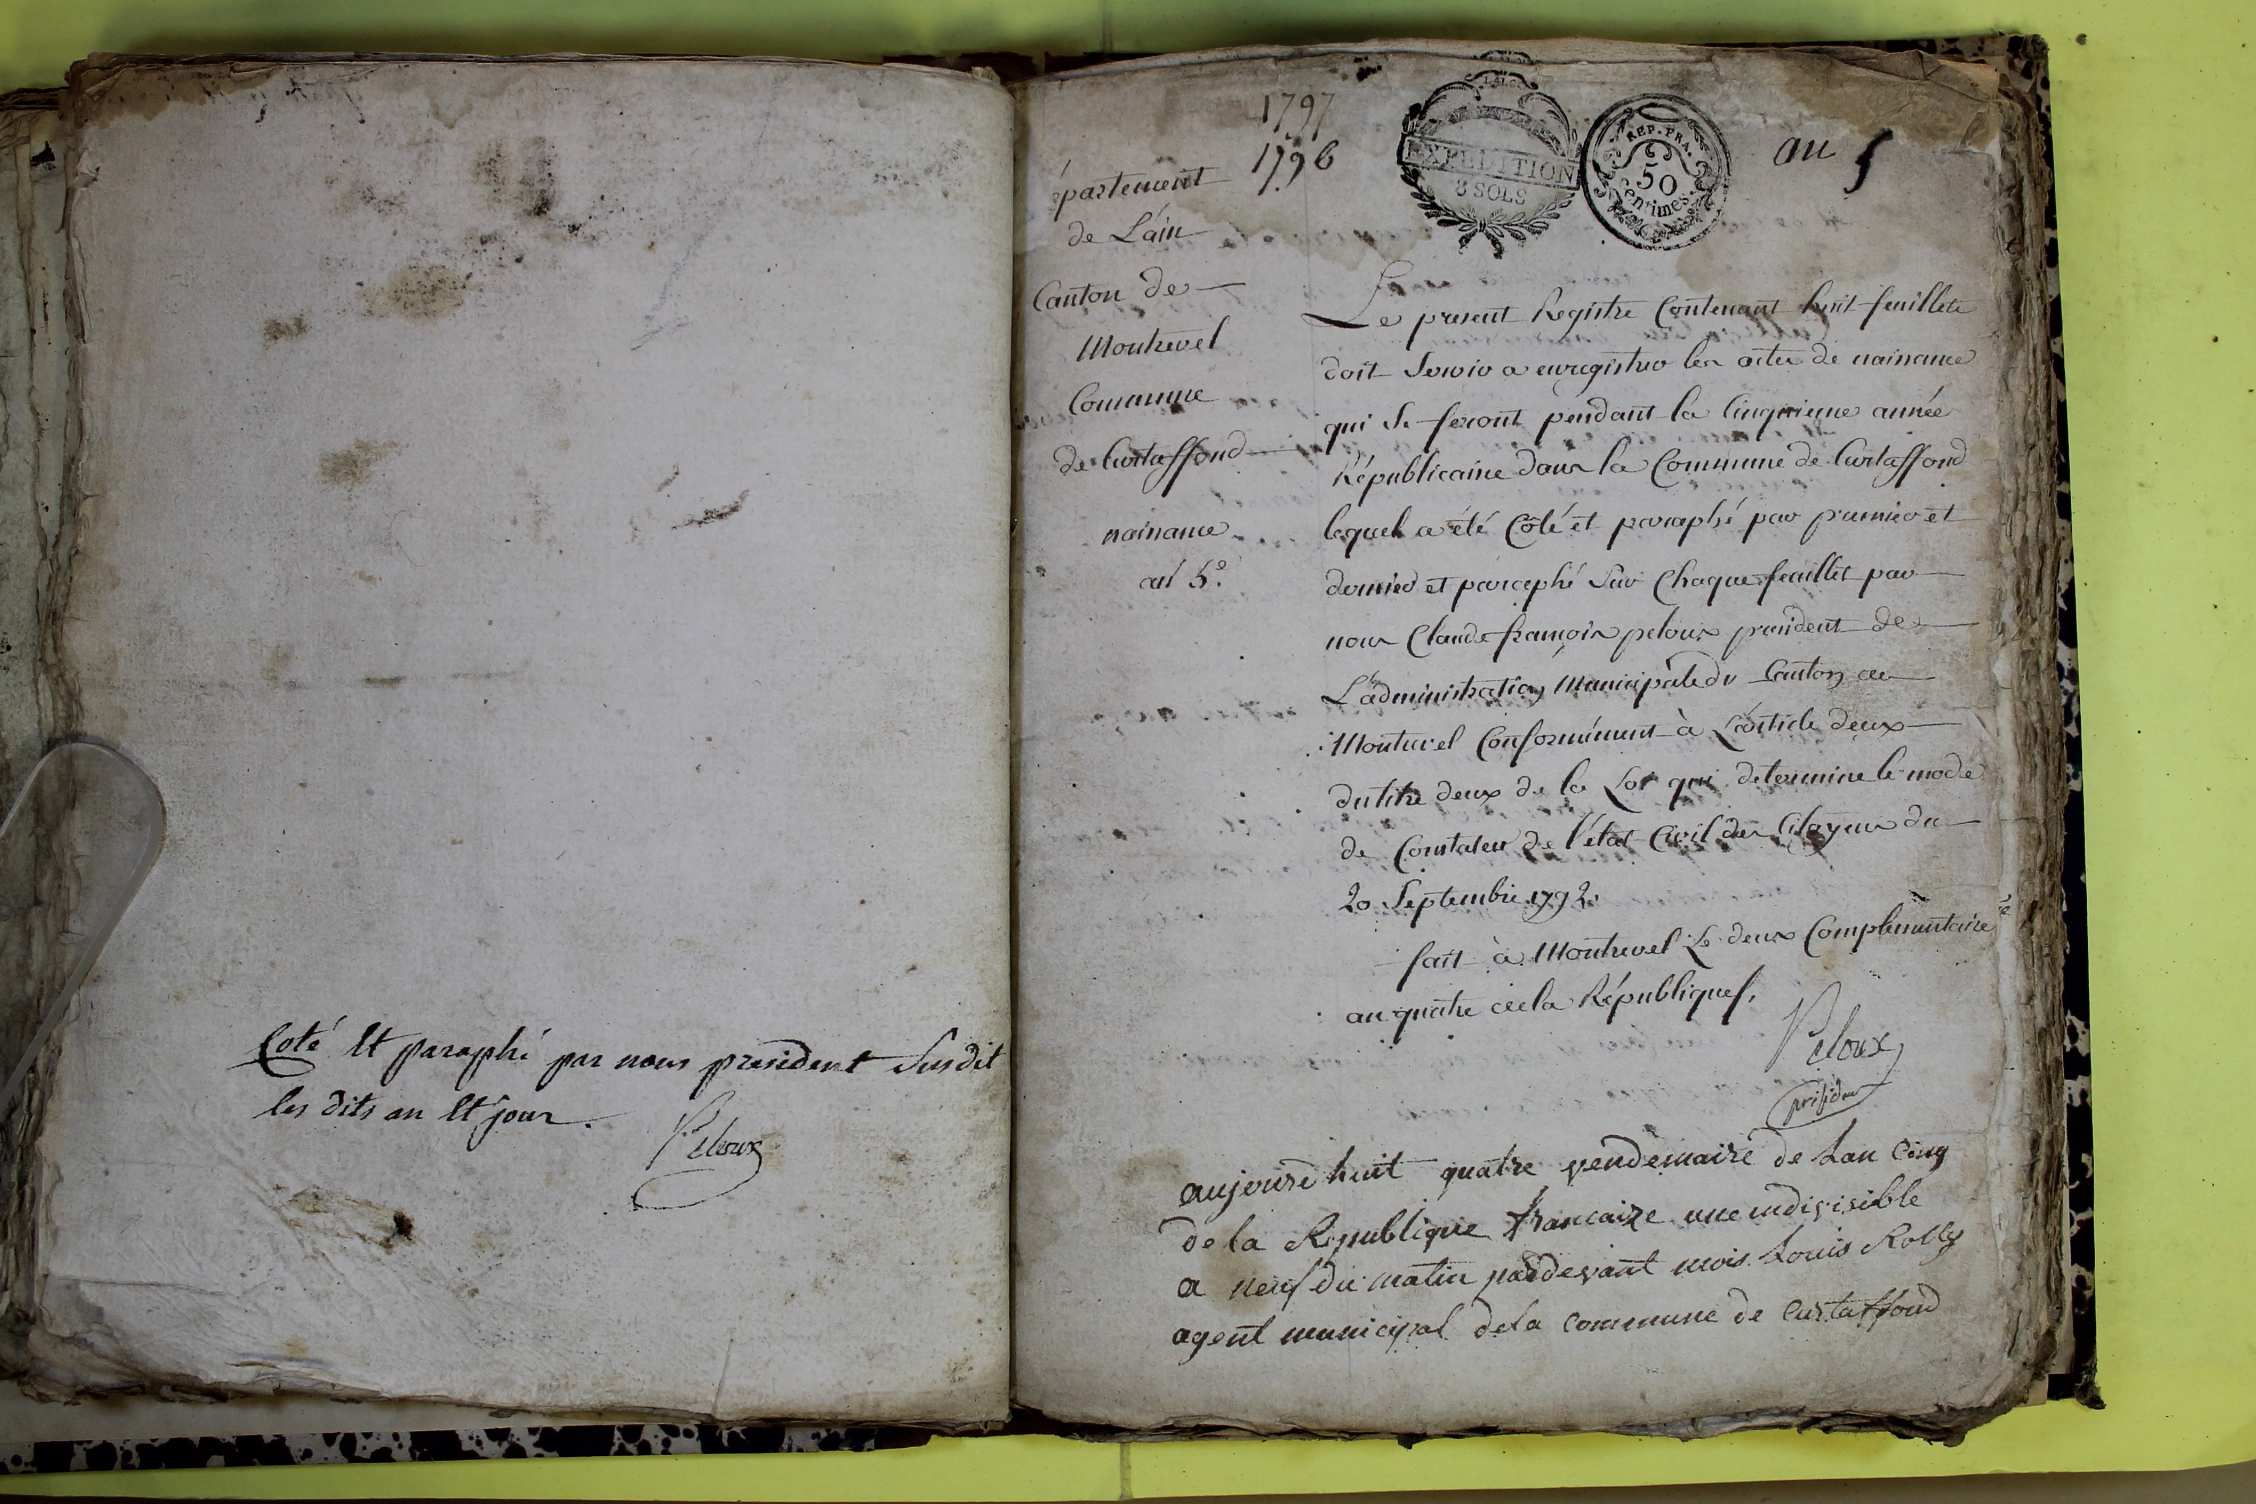 Coté Et paraphé par nous president Susdit
les dits an Et jour.
Peloux
1797
1796
EXPEDITION
8 SOLS
REP. FRA.
50
Centimes.
an 5
épartement
de L'ain
Canton de
Montrevel
Commune
de Curtaffond
naissance
an 5.e
Le present Registre Contenant huit feuillets
doit Servir a enregistrer les actes de naissance
qui Se feront pendant la Cinquieme année
Républicaine dans la Commune de Curtaffond
lequel a été Coté et paraphé par premier et
dernier et paraphé Sur Chaque feuillet par
nous Claude françois peloux president de
L'administration Municipale du Canton de
Montrevel Conformément à L'article deux
du titre deux de la Loi qui determine le mode
de Constater de l'état Civil des Citoyens du
20 Septembre 1792.
fait à Montrevel Le deux Complementaire
an quatre de la République.
Peloux
président
aujourd huit quatre vendemaire de Lan Cinq
de la Republique francaize une indivisible
a neuf du matin pardevant mois Louis Rolly
agent municipal de la commune de Curtaffond